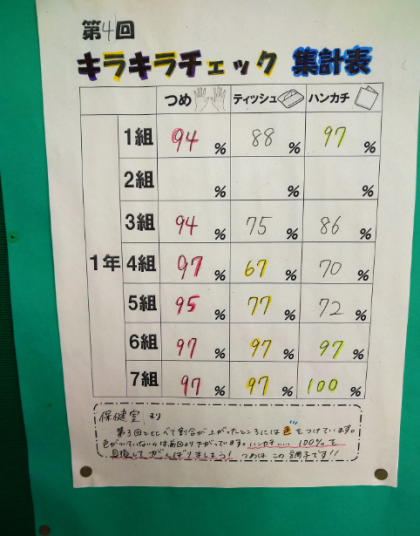 第4回
キラキラチェック 集計表
つめ ティッシュ ハンカチ
1年
1組 94% 88% 97%
2組 % % %
3組 94% 75% 86%
4組 97% 67% 70%
5組 95% 77% 72%
6組 97% 97% 97%
7組 97% 97% 100%
保健室より
第3回とくらべて割合が上がったところには色をつけています。
色がついていないのは前回より下がっています。ハンカチ…… 100%を
目指してがんばりましょう! つめはこの調子です!!